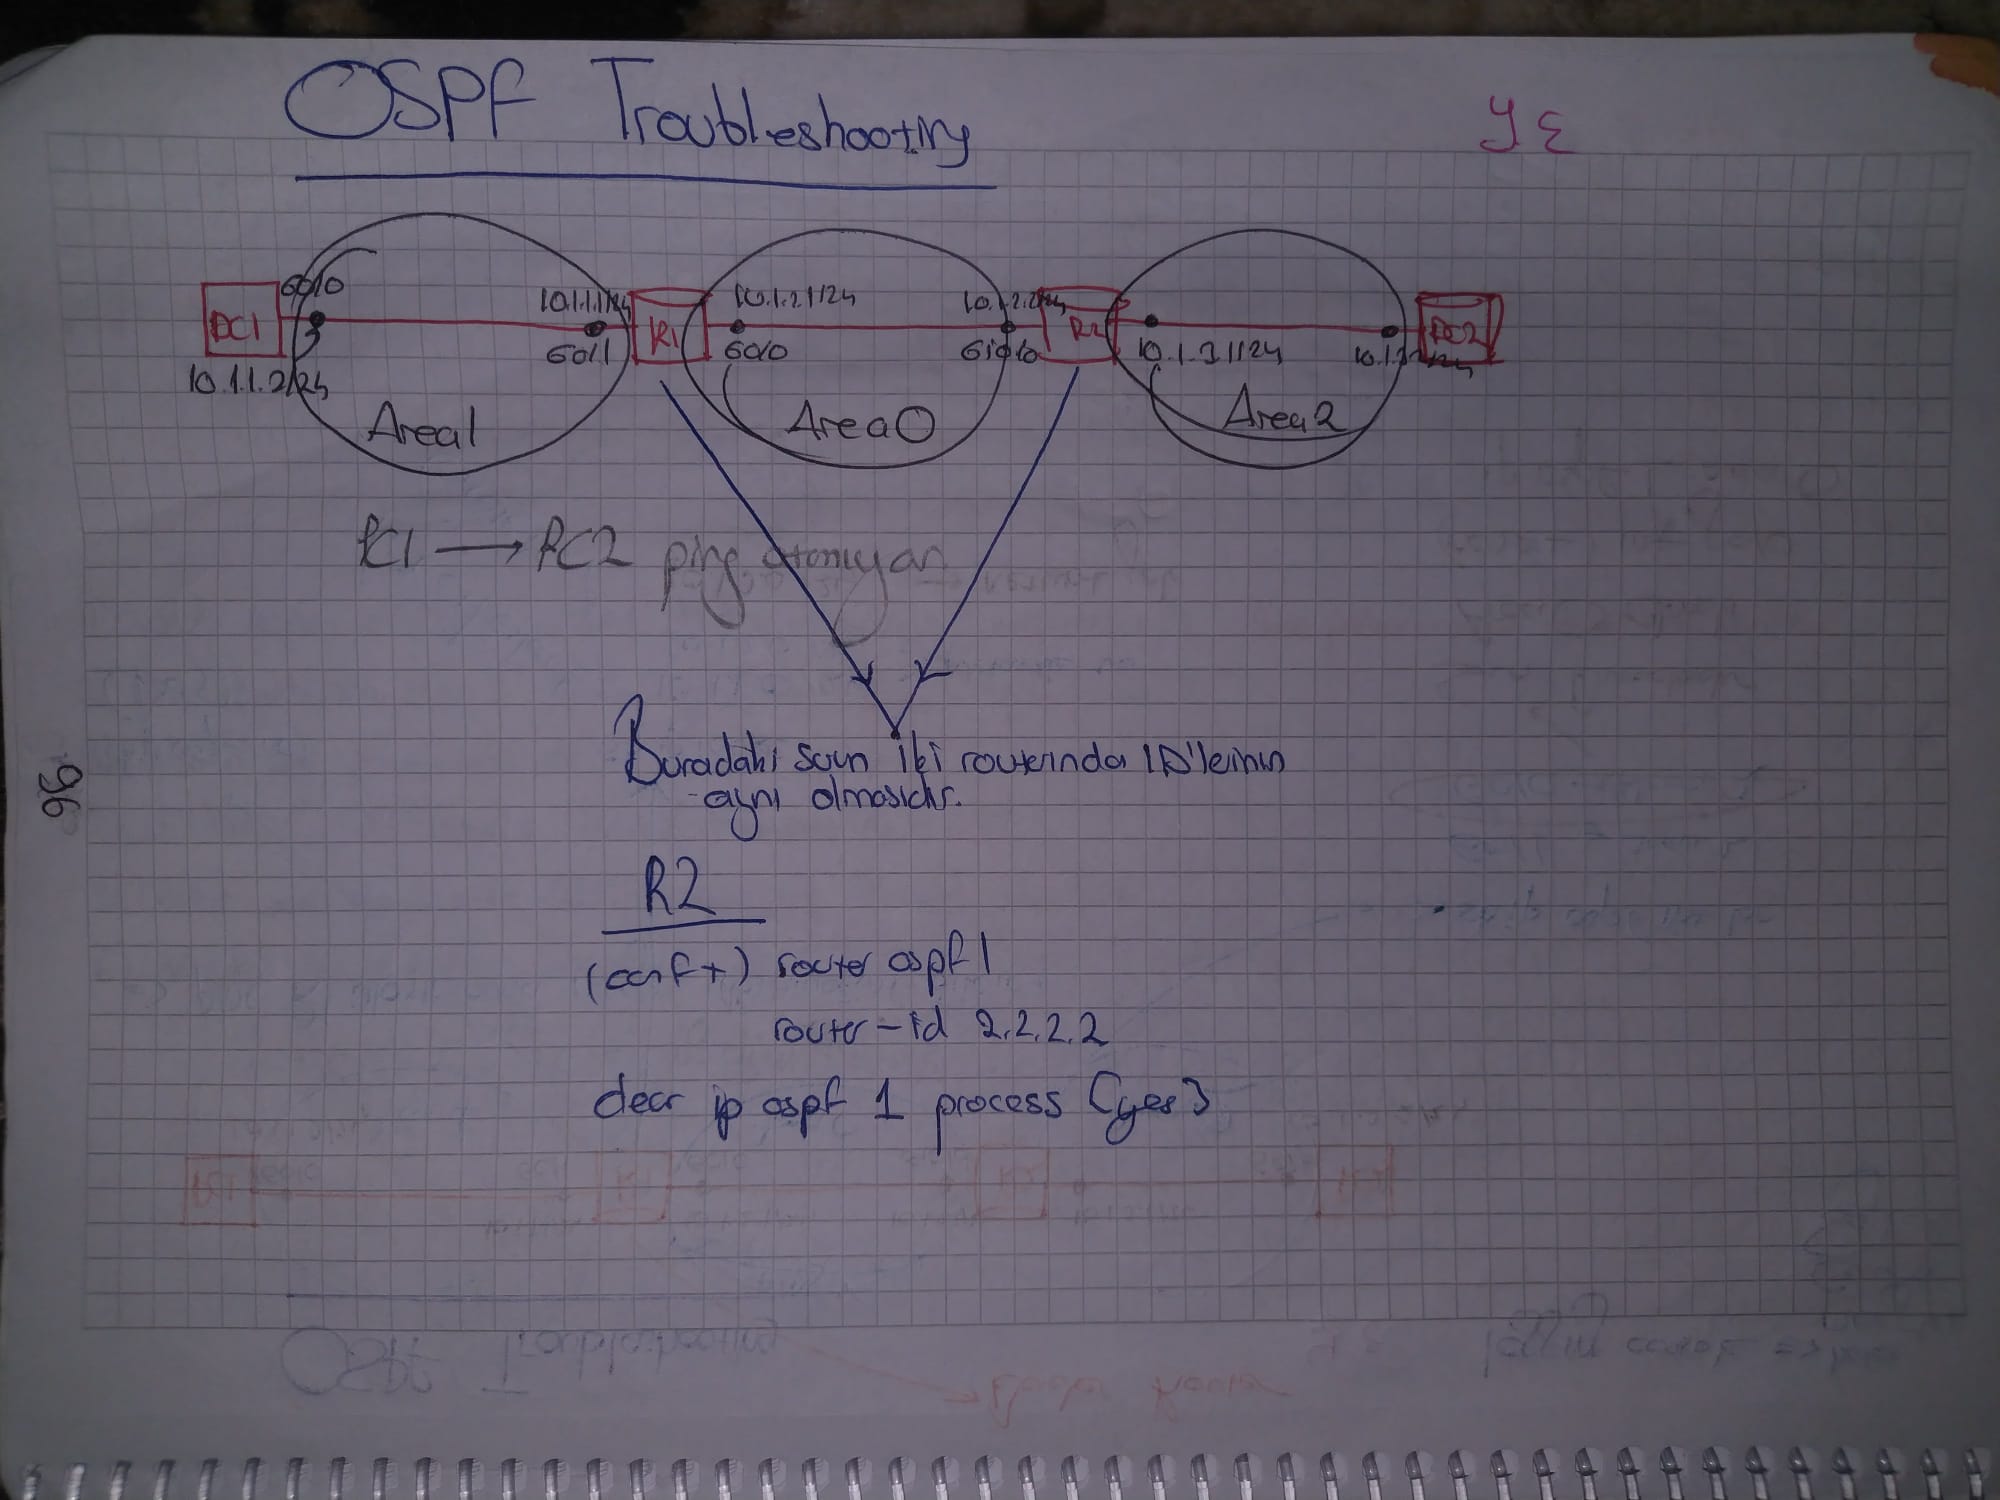 OSPF Troubleshooting
YE
G0/0
10.1.1.1/24
10.1.2.1/24
10.1.2.2/24
PC1
R1
R2
PC2
G0/1
G0/0
G1/0/0
10.1.3.1/24
10.1.1.2/24
Area1
Area0
Area2
PC1 → PC2 ping atamıyor
Buradaki sorun iki routerında ID'lerinin
aynı olmasıdır.
96
R2
(conf t) router ospf 1
router-id 2.2.2.2
clear ip ospf 1 process [yes]